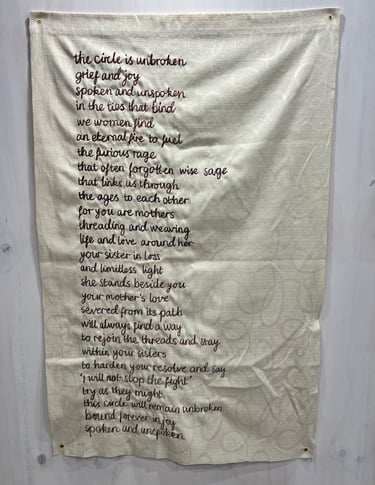 the circle is unbroken
grief and joy
spoken and unspoken
in the ties that bind
we women find
an eternal fire to fuel
the furious rage
that often forgotten wise sage
that links us through
the ages to each other
for you are mothers
threading and weaving
life and love around her
your sister in loss
and limitless light
she stands beside you
your mother's love
severed from its path
will always find a way
to rejoin the threads and stay
within your sisters
to harden your resolve and say
'I will not stop the fight'
try as they might
this circle will remain unbroken
bound forever in joy
spoken and unspoken